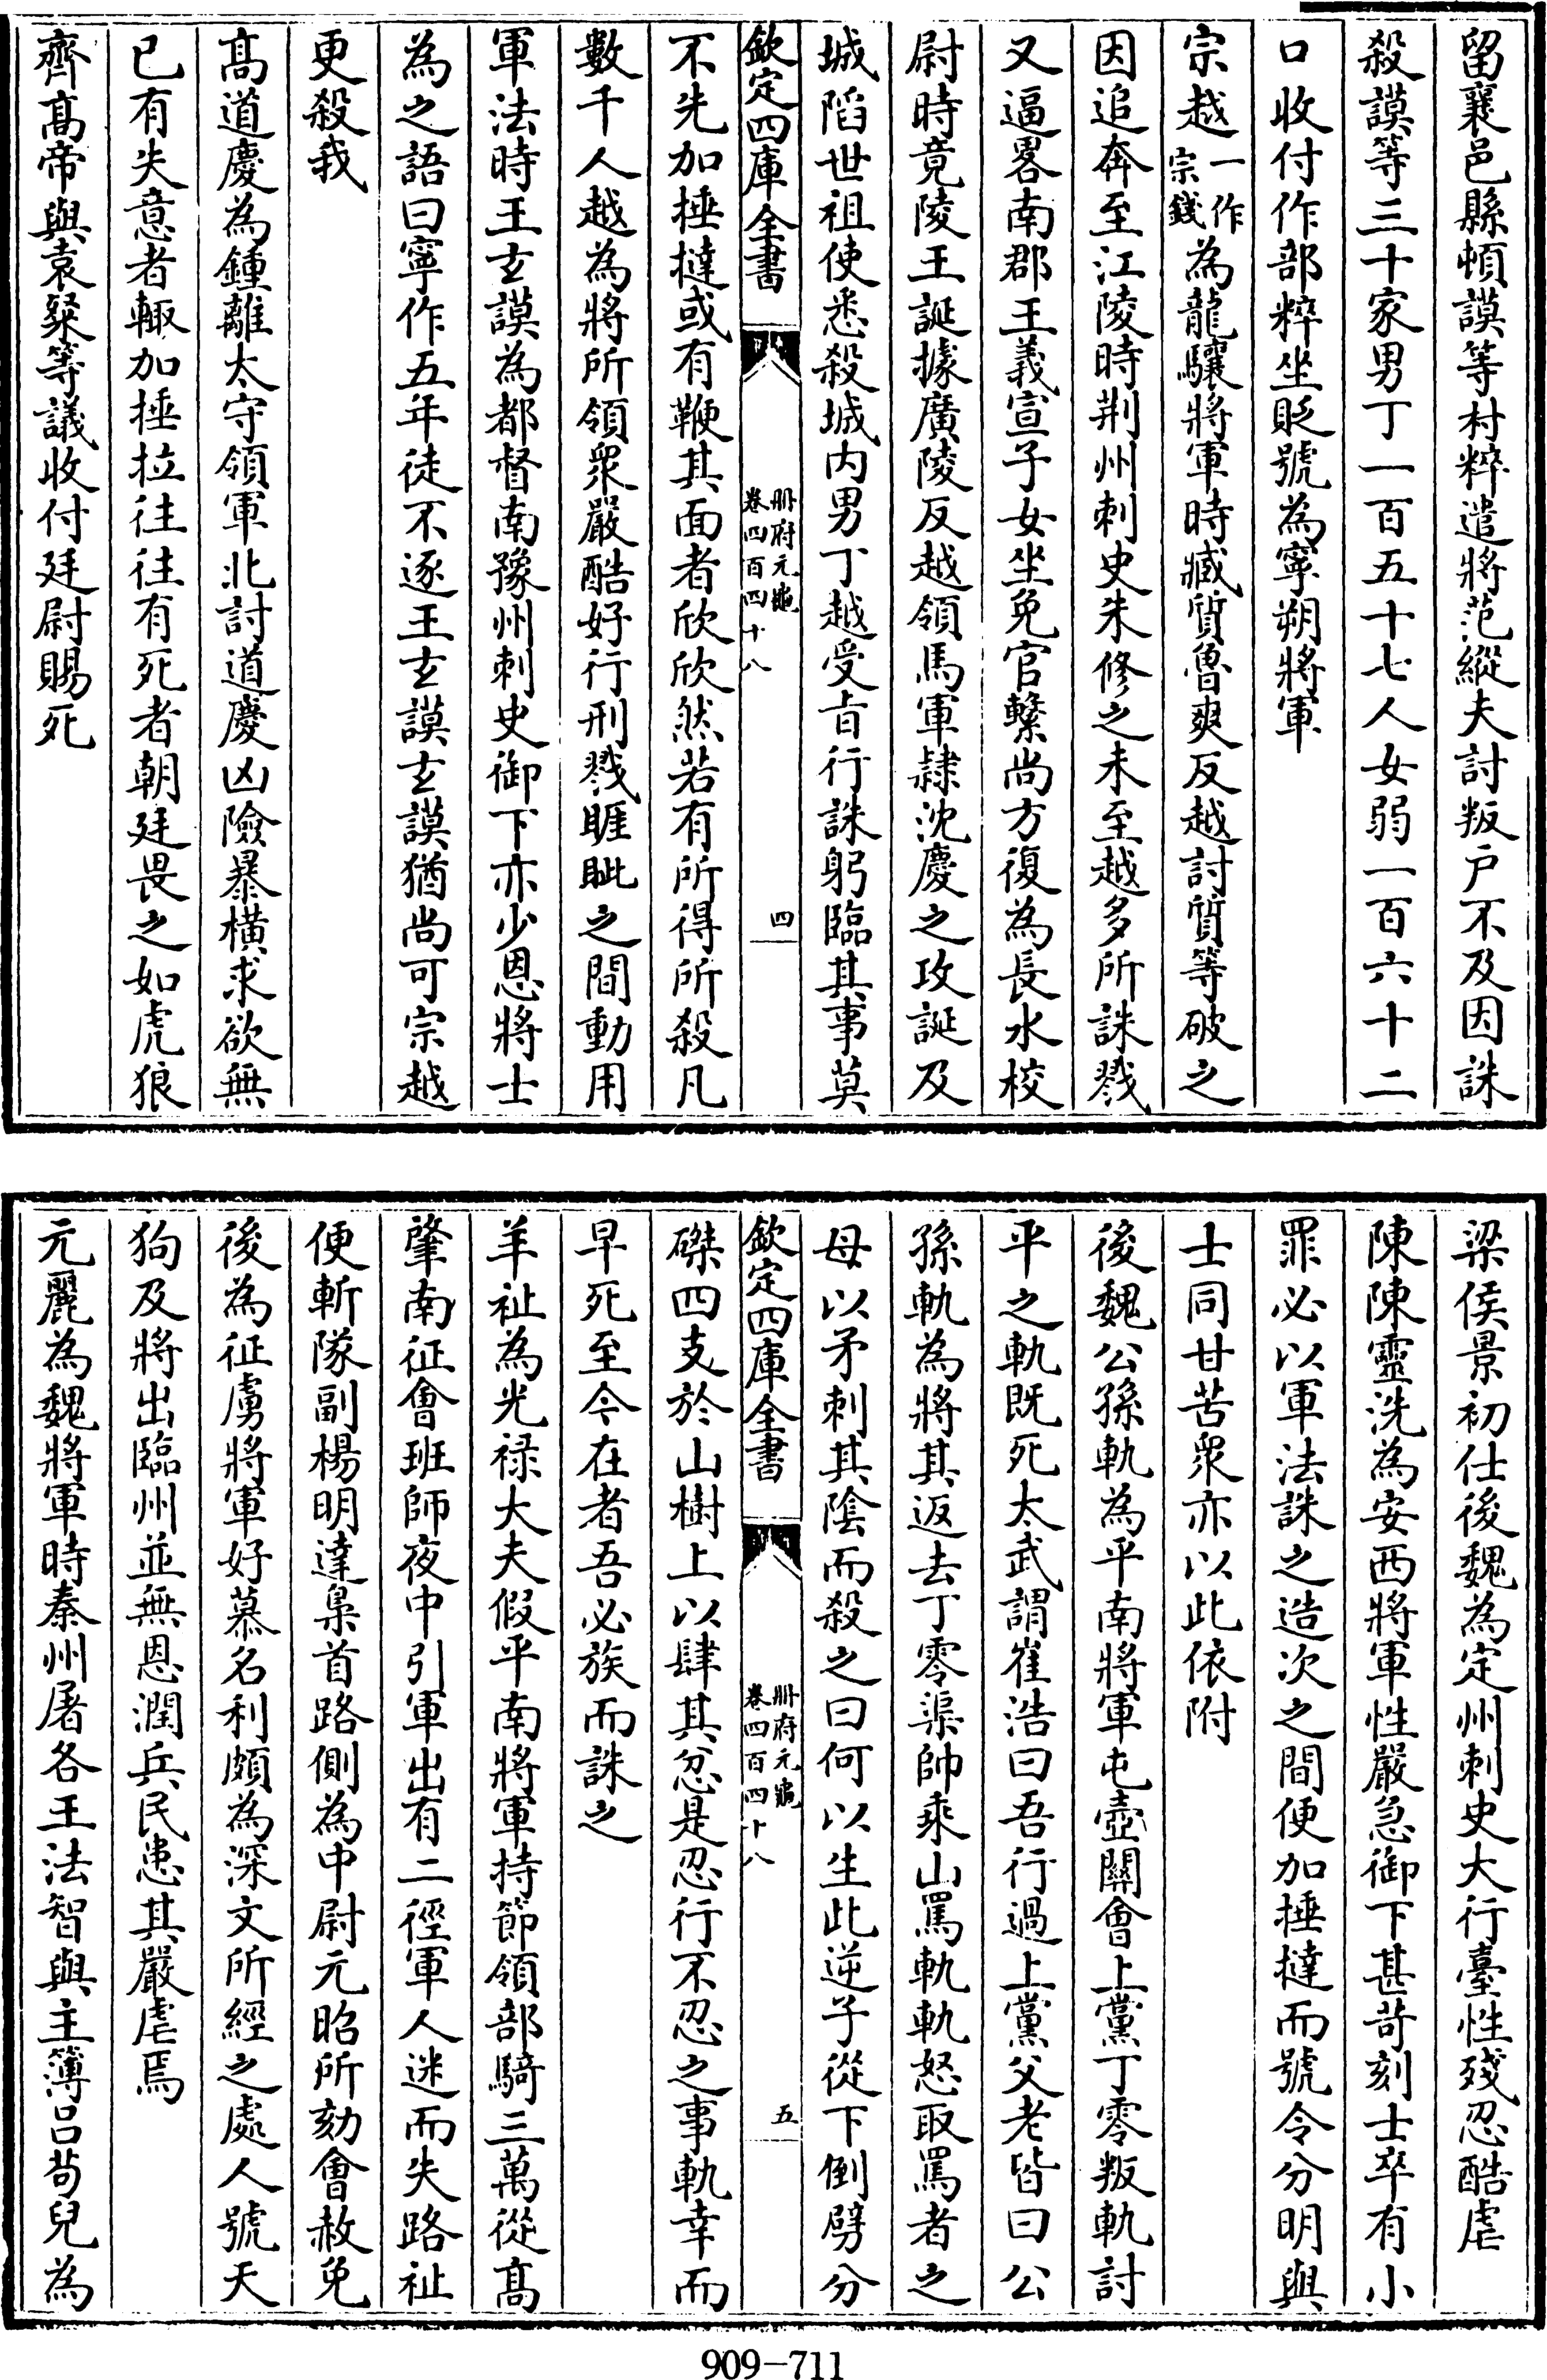 留襄邑縣頓謨等村粹遣將范縱夫討叛戸不及因誅
殺謨等三十家男丁一百五十七人女弱一百六十二
口收付作部粹坐貶號為寧朔將軍
宗越一作宗錢為龍驤將軍時臧質魯爽反越討質等破之
因追奔至江陵時荆州刺史朱修之未至越多所誅戮
又逼畧南郡王義宣子女坐免官繫尚方復為長水校
尉時竟陵王誕據廣陵反越領馬軍隸沈慶之攻誕及
城陷世祖使悉殺城内男丁越受旨行誅躬臨其事莫
欽定四庫全書
冊府元龜
卷四百四十八
四
不先加捶撻或有鞭其面者欣欣然若有所得所殺凡
數千人越為將所領衆嚴酷好行刑戮睚眦之間動用
軍法時王玄謨為都督南豫州刺史御下亦少恩將士
為之語曰寧作五年徒不逐王玄謨玄謨猶尚可宗越
更殺我
髙道慶為鍾離太守領軍北討道慶凶險暴橫求欲無
已有失意者輙加捶拉往往有死者朝廷畏之如虎狼
齊髙帝與袁粲等議收付廷尉賜死
梁侯景初仕後魏為定州刺史大行臺性殘忍酷虐
陳陳靈洗為安西將軍性嚴急御下甚苛刻士卒有小
罪必以軍法誅之造次之間便加捶撻而號令分明與
士同甘苦衆亦以此依附
後魏公孫軌為平南將軍屯壺關會上黨丁零叛軌討
平之軌既死太武謂崔浩曰吾行過上黨父老皆曰公
孫軌為將其返去丁零渠帥乘山罵軌軌怒取罵者之
母以矛刺其陰而殺之曰何以生此逆子從下倒劈分
欽定四庫全書
冊府元龜
卷四百四十八
五
磔四支於山樹上以肆其忿是忍行不忍之事軌幸而
早死至今在者吾必族而誅之
羊祉為光禄大夫假平南將軍持節領部騎三萬從髙
肇南征會班師夜中引軍出有二徑軍人迷而失路祉
便斬隊副楊明達梟首路側為中尉元昭所劾會赦免
後為征虜將軍好慕名利頗為深文所經之處人號天
狗及將出臨州並無恩潤兵民患其嚴虐焉
元麗為魏將軍時秦州屠各王法智與主簿吕苟兒為
909-711